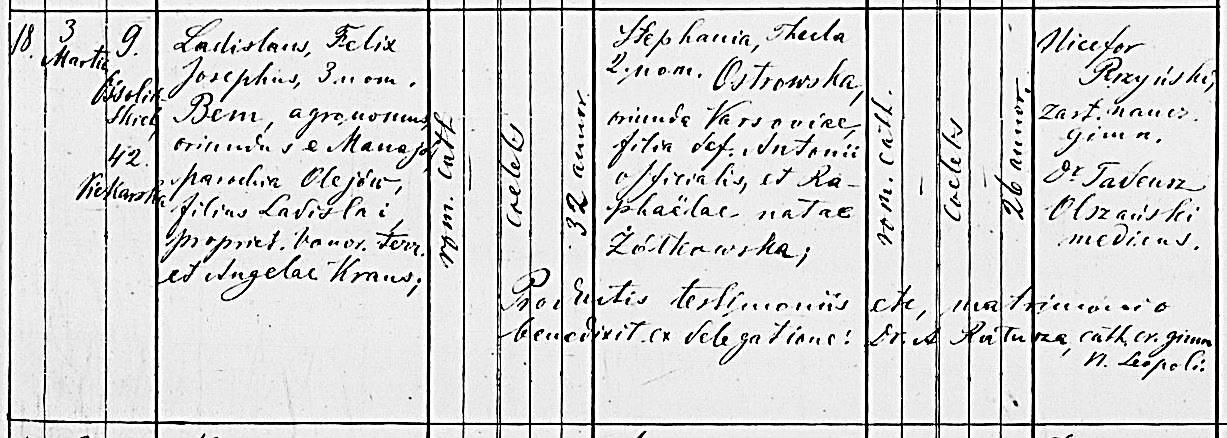 18.
3
Martii
9.
Ossoliń-
skich
42.
Ladislaus, Felix
Josephus, 3 nom.
Bem, agronomus,
oriundus e Manajów,
parochia Olejów,
filius Ladislai,
propriet. bonor. terr.
et Angelae Kraus;
rom. cath.
coelebs
32 annor.
Stephania, Thecla
2. nom. Ostrowska,
oriunda Varsoviae,
filia def. Antonii
officialis, et Ra-
phaëlae natae
Żółkowska;
rom. cath.
coelebs
26 annor.
Nicefor
zast. naucz.
gimn.
Dr Tadeusz
Olszański
medicus.
Productis testimoniis etc, matrimonio
benedixit ex delegatione: Dr. A cath. gimn
N. Leopoli.